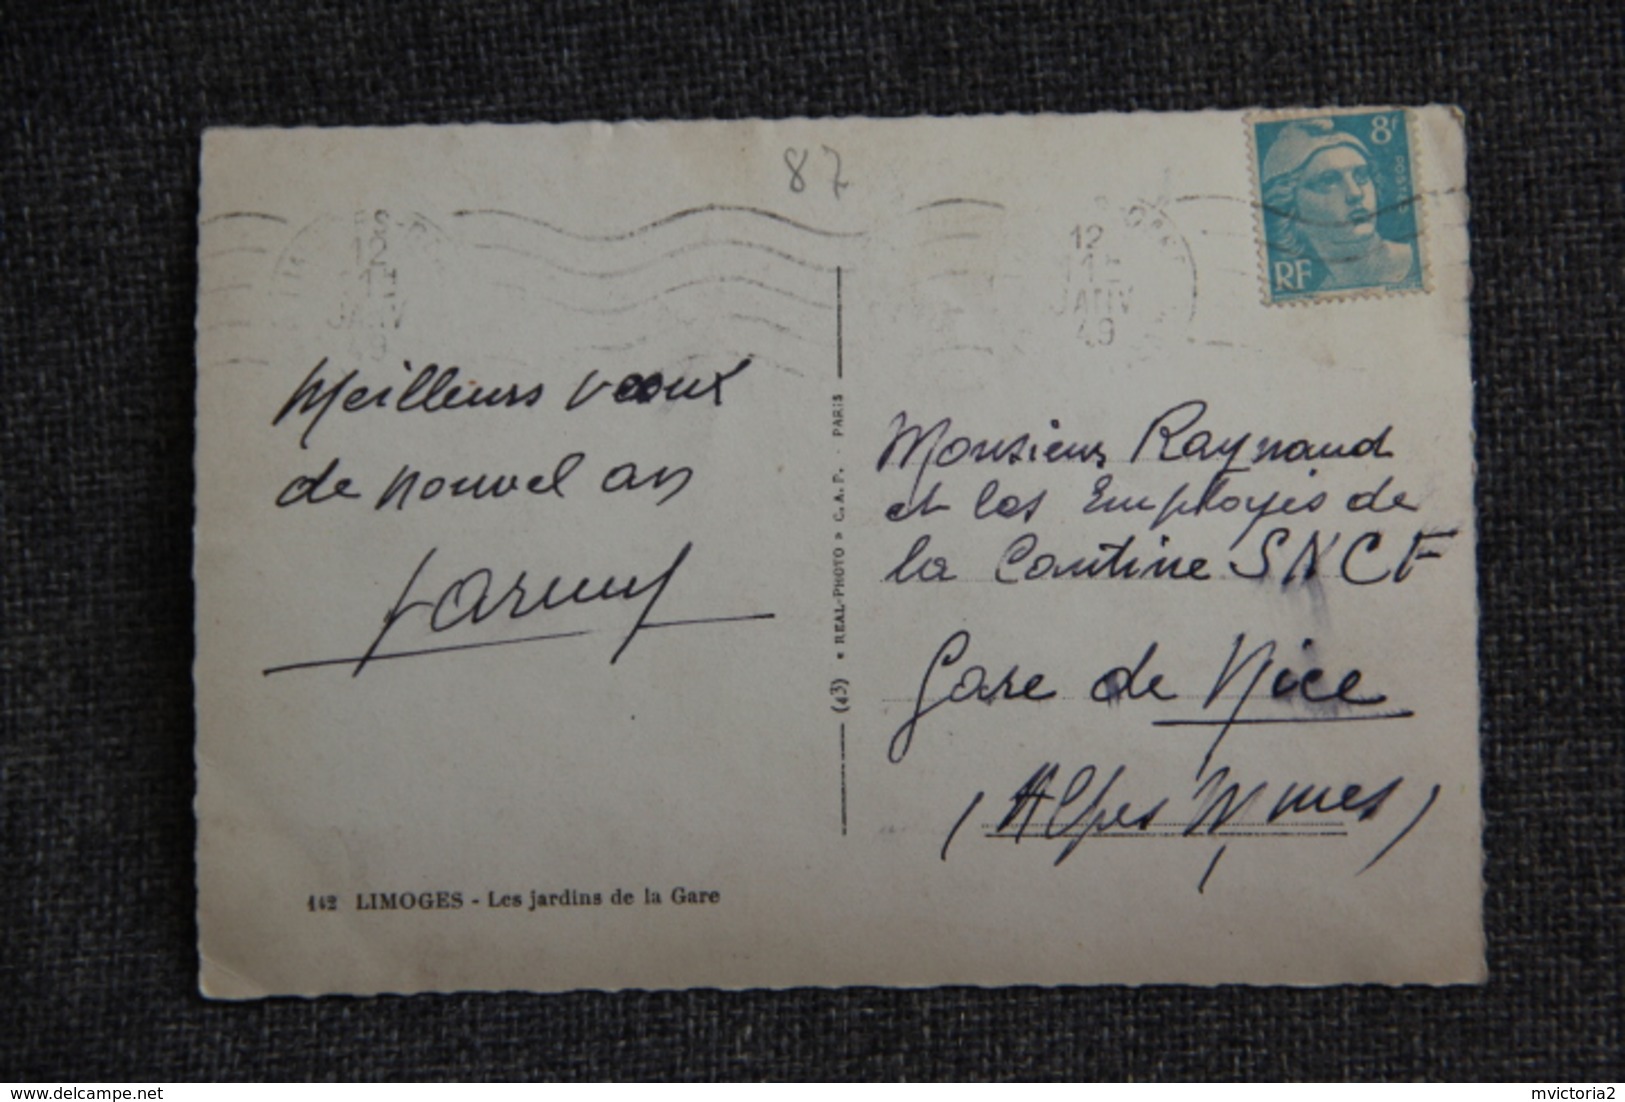 87
8f
POSTES
RF
12
JANV
49
12
JANV
49
Meilleurs voeux
de nouvel an
Monsieur Raynaud
et les Employés de
la Cantine SNCF
Gare de Nice
(Alpes Mmes)
(43) « REAL-PHOTO » C. A. P. - PARIS
142 LIMOGES - Les jardins de la Gare
mvictoria2